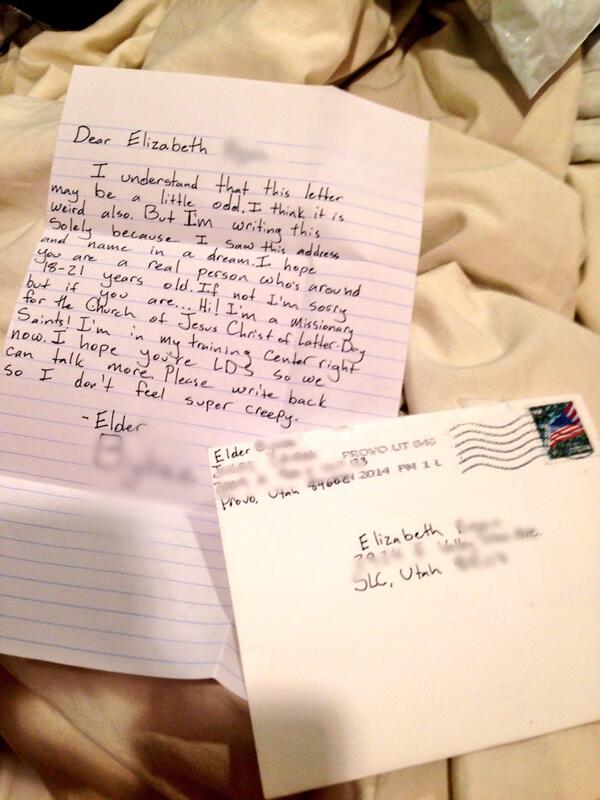 Dear Elizabeth
I understand that this letter
may be a little odd. I think it is
weird also. But I'm writing this
Solely because I saw this address
and name in a dream. I hope
you are a real person who's around
18-21 years old. If not I'm sorry
but if you are... Hi! I'm a missionary
for the Church of Jesus Christ of Latter-Day
Saints! I'm in my training center right
now. I hope you're LDS so we
can talk more. Please write back
so I don't feel super creepy.
- Elder
Elder
PROVO UT
Provo, Utah
2014 PM 1 L
Elizabeth
SLC, Utah